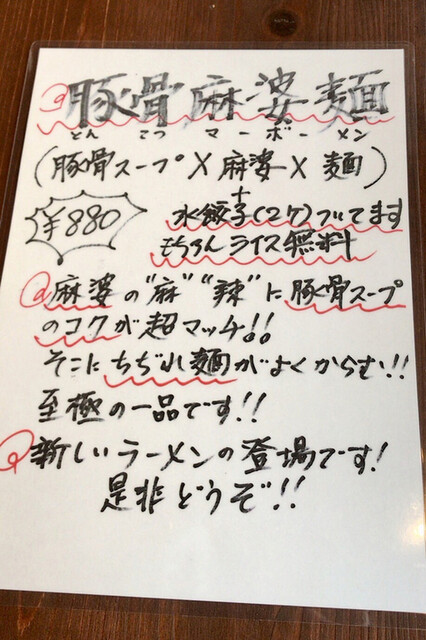 豚骨麻婆麺
とん こつ マーボーメン
(豚骨スープ×麻婆×麺)
+
¥880
水餃子(2ケ)ついてます
もちろんライス無料
麻婆の"麻""辣"に豚骨スープ
のコクが超マッチ!!
そこにちぢれ麺がよくからむ!!
至極の一品です!!
新しいラーメンの登場です!
是非どうぞ!!